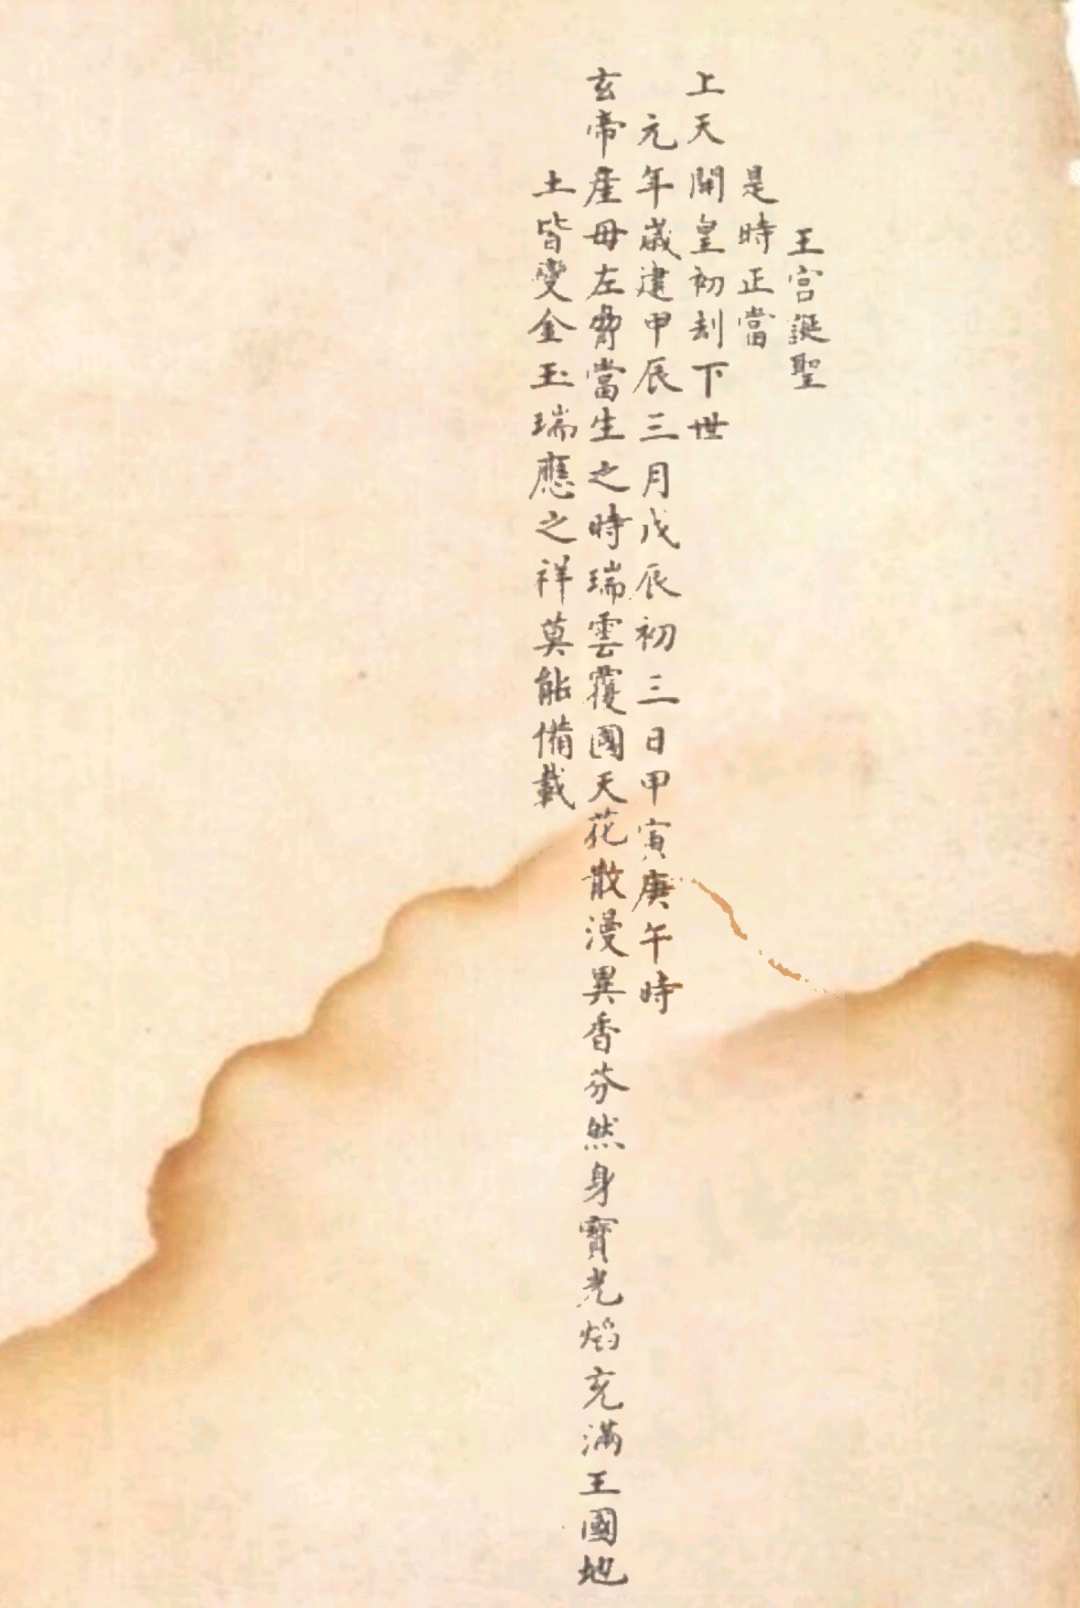 王宮誕聖
是時正當
上天開皇初刼下世
元年歲建甲辰三月戊辰初三日甲寅庚午時
玄帝產母左脅當生之時瑞雲覆國天花散漫異香芬然身寶光焰充滿王國地
土皆變金玉瑞應之祥莫能備載